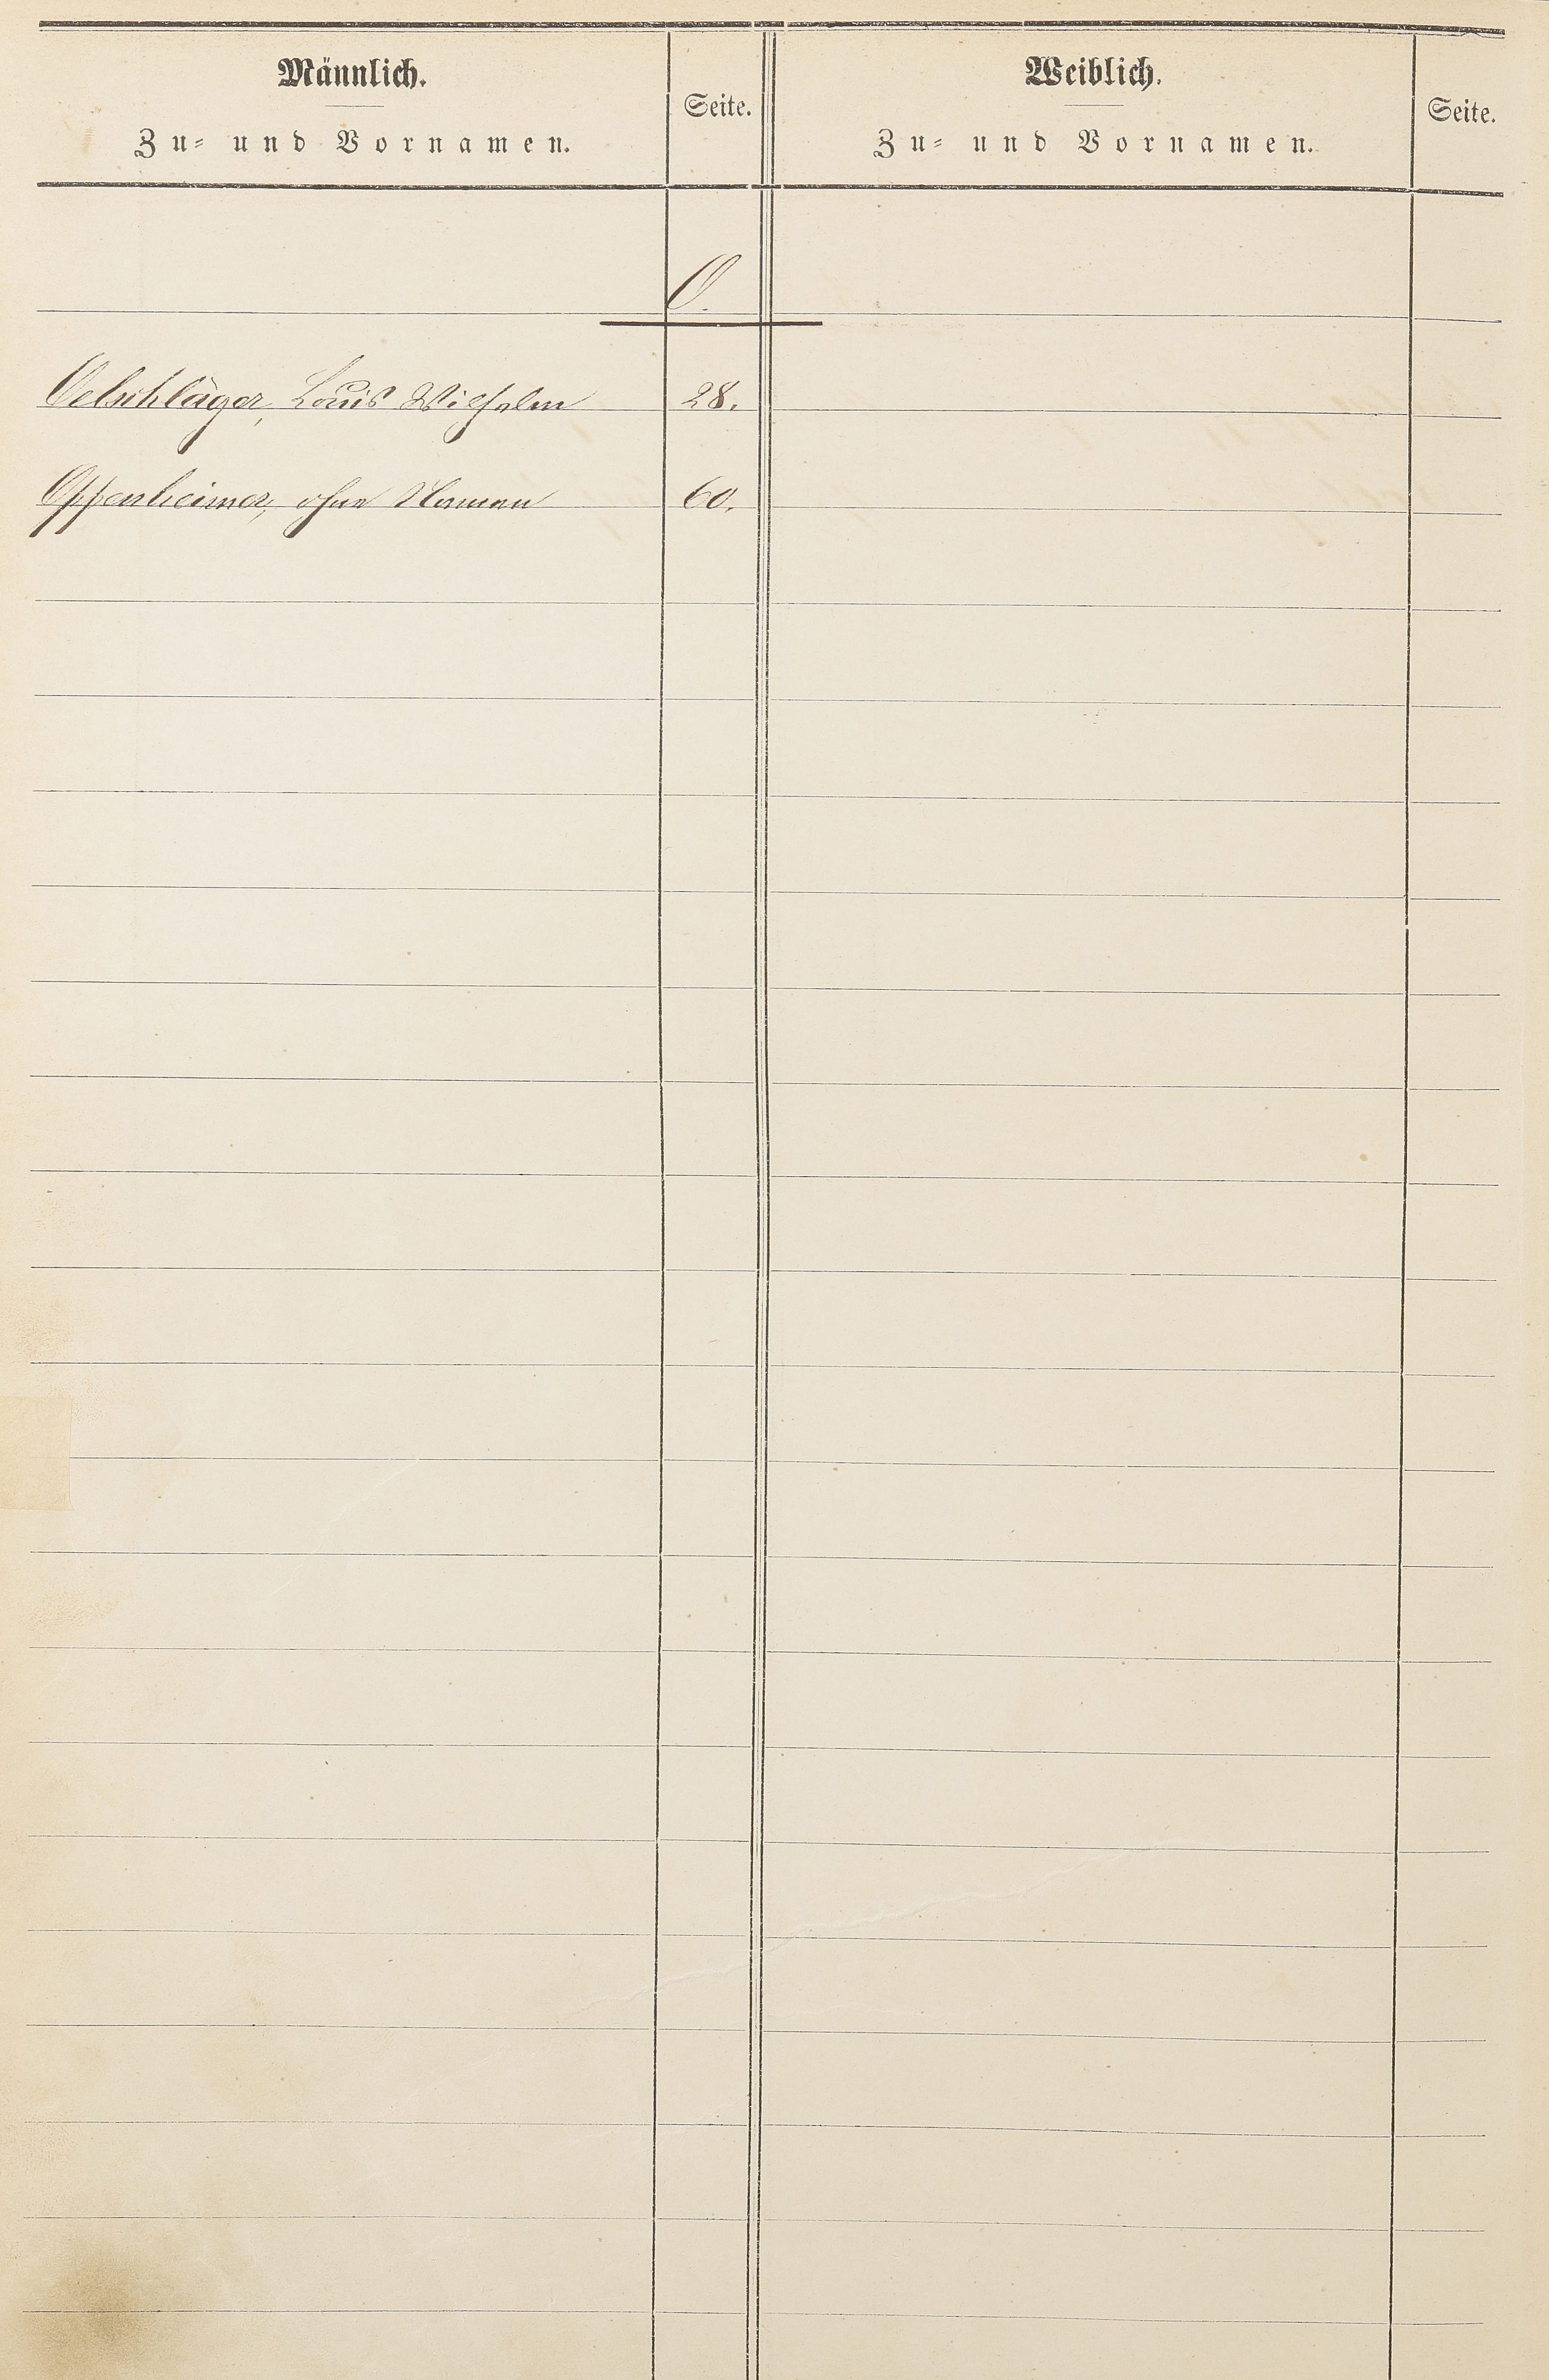 Männlich.
Zu- und Vornamen.
Seite.
Weiblich.
Zu- und Vornamen.
Seite.
O.
Oelschläger, Louis Wilhelm 28.
Oppenheimer, ohne Namen 60.